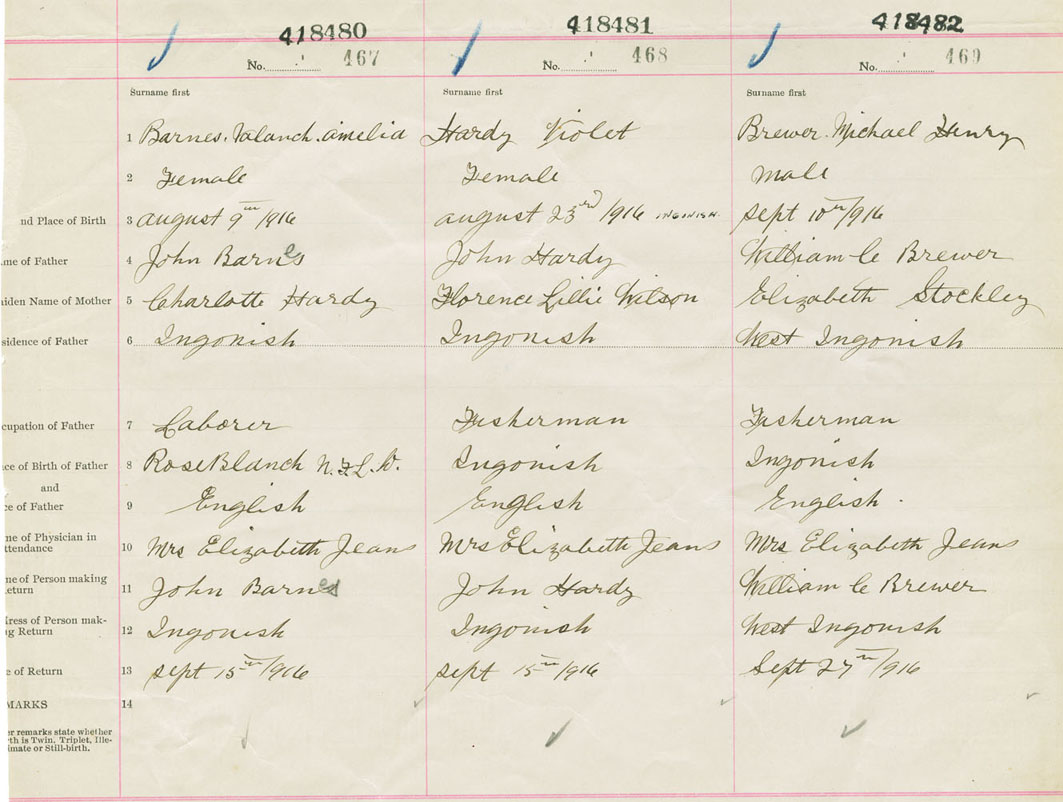 418480 418481 418482
No. 467 No. 468 No. 469
Surname first Surname first Surname first
1 Barnes. Valanch. amelia Hardy Violet Brewer. Michael Henry
2 Female Female male
nd Place of Birth 3 august 9th /916 august 23rd /916 INGONISH. sept 10th /916
me of Father 4 John Barnes John Hardy William C Brewer
aiden Name of Mother 5 Charlotte Hardy Florence Lillie Wilson Elizabeth Stockley
sidence of Father 6 Ingonish Ingonish West Ingonish
cupation of Father 7 Laborer Fisherman Fisherman
ace of Birth of Father 8 Rose Blanch N.F.L.D. Ingonish Ingonish
and
ce of Father 9 English English English.
me of Physician in
ttendance 10 Mrs Elizabeth Jeans Mrs Elizabeth Jeans Mrs Elizabeth Jeans
me of Person making
eturn 11 John Barnes John Hardy William C Brewer
dress of Person mak-
ng Return 12 Ingonish Ingonish West Ingonish
e of Return 13 sept 15th /916 sept 15th /916 Sept 27th /916
MARKS 14
er remarks state whether
rth is Twin, Triplet, Ille-
imate or Still-birth.